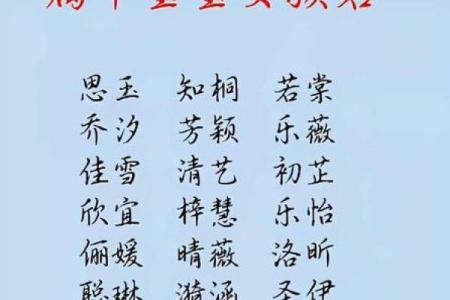 思玉 知桐 若棠
乔汐 芳颖 乐薇
佳雪 清艺 初芷
欣宜 梓慧 乐怡
俪媛 晴薇 洛昕
聪琳 漪涵 圣伊